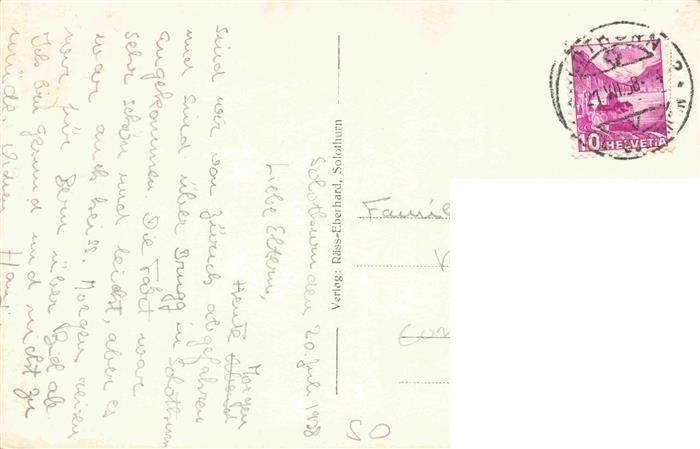 Solothurn den 20. Juli 1938
Liebe Eltern,
Heute Morgen
sind wir von Zürich abgefahren
und sind über Brugg in Solothurn
angekommen. Die Fahrt war
sehr schön und leicht, aber es
war auch heiss. Morgen reisen
wir für Bern über Biel ab.
Ich bin gesund und nicht zu
müde.
Verlag: Räss-Eberhard, Solothurn
Famil
SO
21.VII.38
2
10 HELVETIA